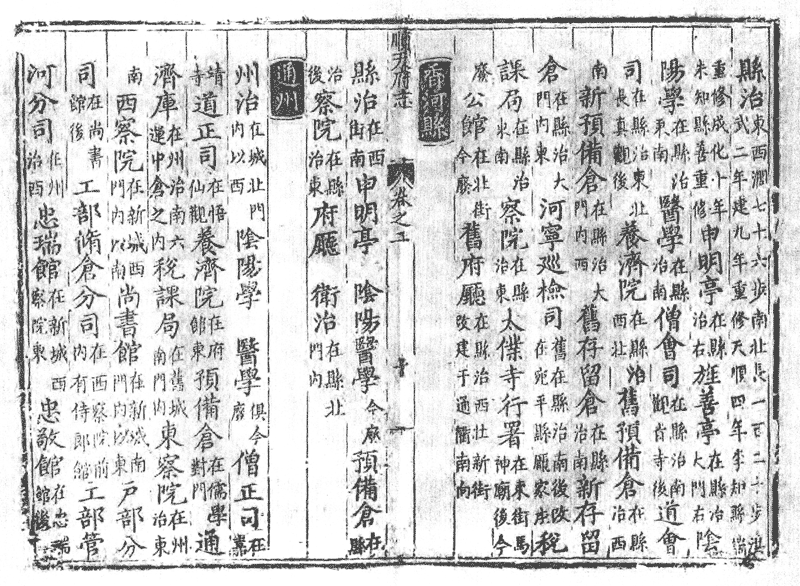 縣治東西濶七十六步南北長一百二十步洪武二年建九年重修天順四年李知縣瑞
重修成化十年朱知縣喜重修申明亭在縣治右旌善亭在縣治大門右陰
陽學在縣治東南醫學在縣治南僧會司在縣治南觀音寺後道會
司在縣治東北長真觀後養濟院在縣治西北舊預備倉在縣治西
南新預備倉在縣治大門內西舊存留倉在縣治南新存留
倉在縣治大門內東河寧廵檢司舊在縣治南後改在宛平縣顧家庄稅
課局在縣治東南察院在縣治東太僕寺行署在東街馬神廟後今
廢公館在北街今廢舊府廳在縣治西北新街改建于通衢南向
香河縣
順天府志
卷之五
縣治在西街南申明亭 陰陽醫學今廢預備倉在縣
治後察院在縣治東府廳 衛治在縣北門內
通州
州治在城北門內以西陰陽學 醫學俱今廢僧正司在嘉
靖寺道正司在悟仙觀養濟院在府館東預備倉在儒學對門通
濟庫在州治南六運中倉之內稅課局在舊城南門內東察院在州治東
南西察院在新城西門內以南尚書館在新城南門內以東戶部分
司在尚書館後工部脩倉分司在西察院前內有侍郎館工部管
河分司在州治西忠瑞館在新城西察院東忠敬館在忠瑞館後